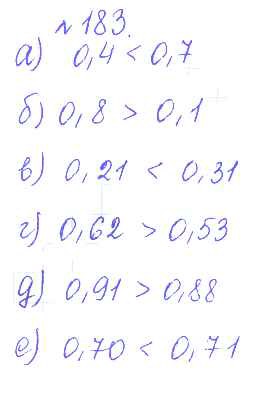 №183.
а) 0,4 < 0,7
б) 0,8 > 0,1
в) 0,21 < 0,31
г) 0,62 > 0,53
д) 0,91 > 0,88
е) 0,70 < 0,71